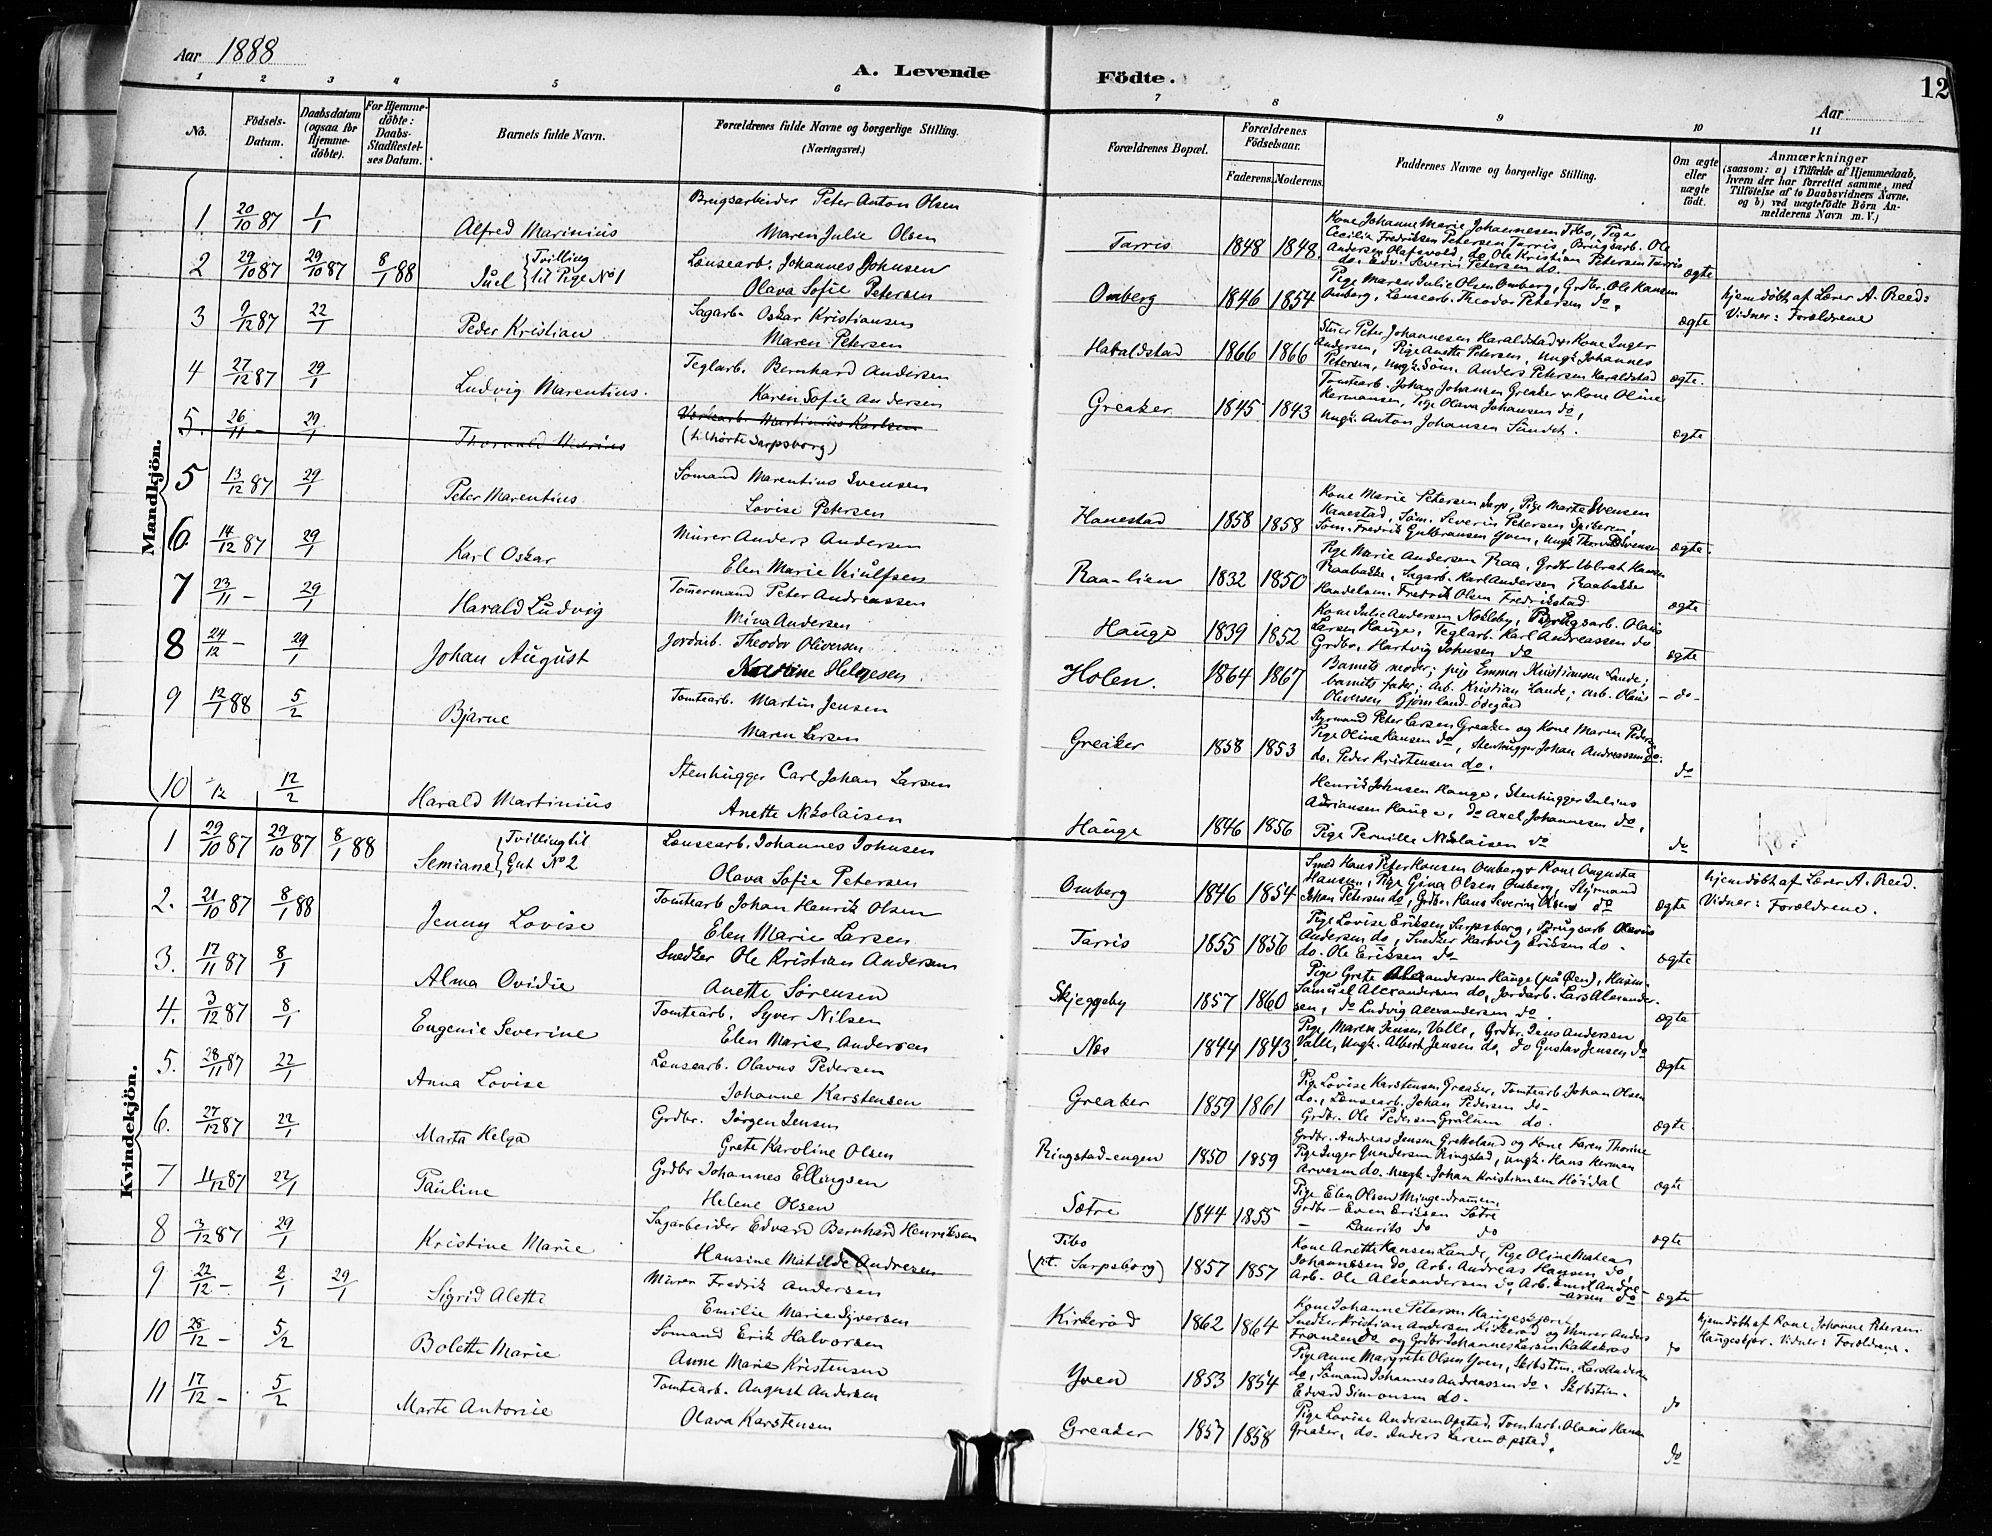 Aar 1888
A. Levende
Födte.
12
Aar
1
2
3
4
5
6
7
8
9
10
11
No.
Födsels-Datum.
Daabsdatum (ogsaa for Hjemme-döbte).
For Hjemme-döbte: Daabs-Stadfæstel-ses Datum.
Barnets fulde Navn.
Forældrenes fulde Navne og borgerlige Stilling.
(Næringsvei.)
Forældrenes Bopæl.
Forældrenes Födselsaar.
Faderens. Moderens.
Faddernes Navne og borgerlige Stilling.
Om ægte eller uægte födt.
Anmærkninger
(saasom: a) i Tilfælde af Hjemmedaab,
hvem der har forrettet samme, med
Tilföielse af to Daabsvidners Navne,
og b) ved uægtefödte Börn An-
melderens Navn m. V.)
Mandkjön.
1 20/10 87 1/1 Alfred Marinius
Brugsarbeider Peter Anton Olsen
Maren Julie Olsen
Tarris 1848 1848
Kone Johanne Marie Johannesen Tibo, Pige
Cecilia Fredriksen Petersen Tarris, Brugsarb. Ole
Andersen Olafsvold, do Ole Kristian Petersen Tarris
do. Edv. Severin Petersen do.
ægte
2 29/10 87 29/10 87 8/1 88 Juel Tvilling til Pige No 1
Lænsearb. Johannes Johnsen
Olava Sofie Petersen
Omberg 1846 1854
Pige Maren Julie Olsen Omberg, Grdbr. Ole Hansen
Omberg, Lænsearb. Theodor Petersen do.
ægte
hjemdöbt af Lærer A. Reed:
Vidner: Forældrene
3 9/12 87 22/1 Peder Kristian
Sagarb. Oskar Kristiansen
Maren Petersen
Haraldstad 1866 1866
Petersen Johannesen Haraldstad & Kone Inger
Andersen, Pige Anette Petersen, Ungk. Johannes
Petersen, Ungk. Söm. Anders Petersen Haraldstad
ægte.
4 27/12 87 29/1 Ludvig Marentius.
Teglarb. Bernhard Andersen
Karen Sofie Andersen
Greaker 1845 1843
Tomtearb. Johan Johansen Greaker & Kone Oline
Hermansen, Pige Olava Johansen do,
Ungk. Anton Johansen Sandeh.
ægte
5. 26/11 – 29/1 Thorvald Marius
Martinius Karlsen
(tilhörte Sarpsborg)
5 13/12 87 29/1 Peter Marentius
Sömand Marentius Svensen
Lovise Petersen
Hanestad 1858 1858
Kone Marie Petersen Sarp, Pige Marte Svensen
Hanestad, Söm. Severin Petersen Spiberen,
Söm. Fredrik Gulbransen Yven, Ungk. Thorv. Svensen
ægte.
6. 14/12 87 29/1 Karl Oskar
Murer Anders Andersen
Elen Marie Veiulfsen
Raa-lien 1832 1850
Pige Marie Andersen Raa, Grdbr. Volrat Hansen
Raabakke, Sagarb. Karl Andersen Raabakke
Handelsm. Fredrik Olsen Fredrikstad
ægte
7 23/11 – 29/1 Harald Ludvig
Tömermand Peter Andreassen
Mina Andersen
Hauge 1839 1852
Kone Julie Andersen Nokleby, Brugsarb. Olaus
Larsen Hauge, Teglarb. Karl Andreassen do
Grdbr. Hartvig Johnsen do
ægte
8 24/12 – 29/1 Johan August
Jordarb. Theodor Oliversen
Karoline Helgesen
Holen. 1864 1867
Barnets moder; pige Emma Kristiansen Lande;
barnets fader; arb. Kristian Lande; arb. Olaus
Oliversen Björnland-ödegård
– do –
9 12/1 88 5/2 Bjarne
Tomtearb. Martin Jensen
Maren Larsen
Greaker 1858 1853
Styrmand Peter Larsen Greaker og Kone Maren Pedersen
Pige Oline Hansen do, Stenhugger Johan Andreassen do.
do. Peder Kristensen do.
do
10 /12 12/2 Harald Martinius
Stenhugger Carl Johan Larsen
Anette Nikolaisen
Hauge 1846 1856
Henrik Johnsen Hauge, Stenhugger Julius
Adriansen Hauge, do Axel Johannesen do,
Pige Pernille Nikolaisen do
do
Kvindekjön.
1 29/10 87 29/10 87 8/1 88 Semiane Tvilling til Gut No 2
Lænsearb. Johannes Johnsen
Olava Sofie Petersen
Omberg 1846 1854
Smed Hans Peter Hansen Omberg & Kone Augusta
Hansen, Pige Gina Olsen Omberg, Styrmand
Johan Petersen do, Grdbr. Hans Severin Olsen do
ægte
hjemdöbt af Lærer A. Reed.
Vidner: Forældrene.
2. 21/10 87 8/1 88 Jenny Lovise
Tomtearb Johan Henrik Olsen
Elen Marie Larsen.
Tarris 1855 1856
Pige Lovise Eriksen Sarpsborg, Brugsarb Olavus
Andersen do, Snedker Hartvig Eriksen do –
do. Ole Erikssen do –
ægte
3. 17/11 87 8/1 Alma Ovidie
Snedker Ole Kristian Andersen
Anette Sørensen
Skjeggeby 1857 1860
Pige Grete Alexandersen Hauge (på Ren), Husm.
Samuel Alexandersen do, Jordarb. Lars Alexander-
sen, do Ludvig Alexandersen do.
ægte
4. 3/12 87 8/1 Eugenie Severine
Tomtearb. Syver Nilsen
Elen Marie Andersen
Næs 1844 1843
Pige Maren Jensen Valle, Grdbr. Jens Andersen
Valle, Ungk. Albert Jensen do, do Gustav Jensen do
ægte
5. 28/11 87 22/1 Anna Lovise
Lænsearb. Olavus Pedersen
Johanne Karstensen
Greaker 1859 1861
Pige Lovise Karstensen Greaker, Tomtearb Johan Olsen
do., Lænsearb. Johan Pedersen do –
Grdbr. Ole Pedersen Grålum do.
ægte
6. 27/12 87 22/1 Marta Helga
Grdbr. Jörgen Jensen
Grete Karoline Olsen
Ringstad-engen 1850 1859
Grdbr. Andreas Jensen Grekeland og Kone Karen Thorine
Pige Inger Gundersen Ringstad, Ungk. Hans Herman
Arvesen do. Ungk. Johan Kristiansen Höidal
ægte
7 11/12 87 22/1 Pauline
Grdbr Johannes Ellingsen
Helene Olsen
Sætre 1844 1855
Pige Elen Olsen Minge-drammen
Grdbr – Even Eriksen Sætre
– Laurits do do
ægte
8 3/12 87 29/1 Kristine Marie
Sagarbeider Edvard Bernhard Henriksen
Hansine Matilde Andresen
Tibo
(pt. Sarpsborg) 1857 1857
Kone Anette Hansen Lande, Pige Oline Matea
Johannessen do, Arb. Andreas Hansen do,
Arb. Ole Alexandersen do, Arb. Emil Andre-
assen do
ægte
9 22/12 – 2/1 29/1 Sigrid Alette
Murer Fredrik Andersen
Emilie Marie Syversen
Kirkeröd 1862 1864
Kone Johanne Petersen Haugeskjær,
Snedker Kristian Andersen Kirkeröd og Murer Anders
Fransen do og Grdbr. Johannes Larsen Kathekros
do
hjemdöbt af Kone Johanne Petersen
Haugeskjær. Vidner: Forældrene.
10 28/12 – 5/2 Bolette Marie
Sömand Erik Halvorsen
Anne Marie Kristensen
Yven 1853 1854
Pige Anne Margrete Olsen Yven, Skibstöm. Lars Andersen
do, Sömand Johannes Andreassen do. Skibstöm.
Edvard Simonsen do.
do
11 17/12 – 5/2 Marte Antonie
Tomtearb. August Andersen
Olava Karstensen
Greaker 1857 1858
Pige Lovise Andersen Opstad, Tomtarb. Olaus Hansen
Greaker, do. Anders Larsen Opstad.
do